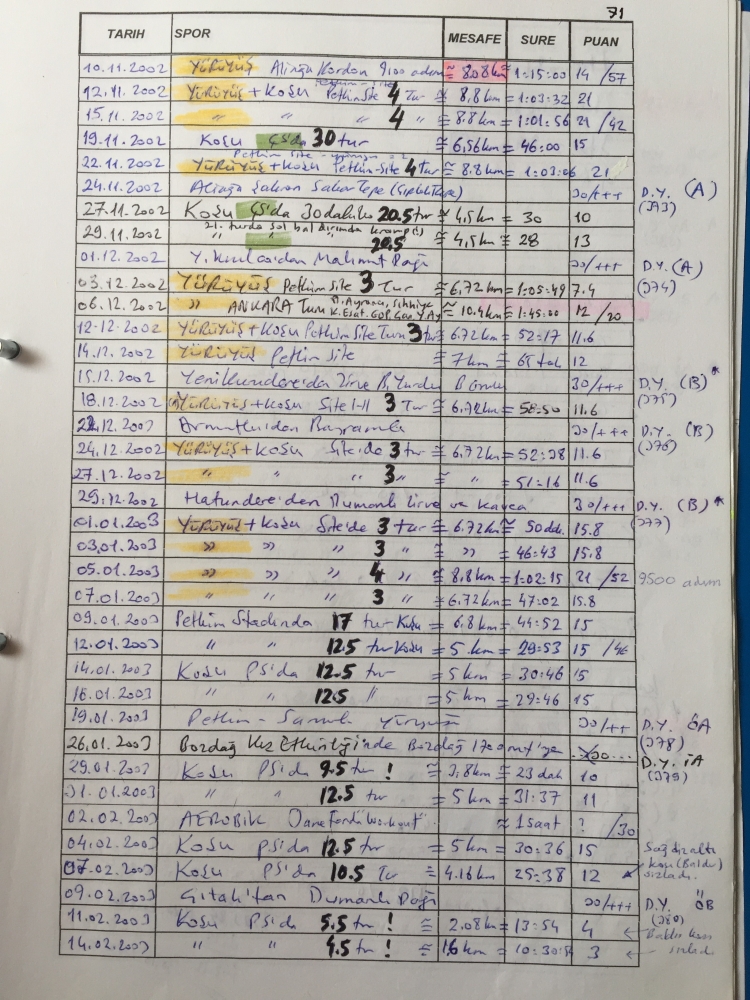 71
TARIH SPOR MESAFE SURE PUAN
10.11.2002 YÜRÜYÜŞ Aliağa Kordon 9100 adım ≅ 8.08km ≅ 1:15:00 14 /57
12.11.2002 YÜRÜYÜŞ + KOŞU Petkim Site 4 Tur ≅ 8.8km = 1:03:32 21
15.11.2002 " " " 4 " ≅ 8.8km = 1:01:56 21 /42
19.11.2002 KOŞU ÇS'da 30 tur ≅ 6,56km = 46:00 15
22.11.2002 YÜRÜYÜŞ + KOŞU Petkim-Site 4 Tur ≅ 8.8km = 1:03:06 21
24.11.2002 Aliağa Şakran Sakar Tepe 30/+++ D.Y. (A)
(373)
27.11.2002 KOŞU ÇS'da 30 dakika 20.5 tur ≅ 4,5km = 30 10
21. turda sol baldırımda kramp
29.11.2002 " " 20.5 ≅ 4,5km ≅ 28 13
01.12.2002 Mahmut Dağı 30/+++ D.Y. (A)
(374)
03.12.2002 YÜRÜYÜŞ Petkim Site 3 Tur ≅ 6.72km ≅ 1:05:49 7.4
06.12.2002 " ANKARA Turu ≅ 10.4km ≅ 1:45:00 12 /20
12.12.2002 YÜRÜYÜŞ + KOŞU Petkim Site Turu 3 tur ≅ 6.72km = 52:17 11.6
14.12.2002 YÜRÜYÜŞ Petkim Site ≅ 7km ≅ 65 dak 12
15.12.2002 Yenikurudere'den 30/+++ D.Y. (B)*
(375)
18.12.2002 YÜRÜYÜŞ + KOŞU Site I-II 3 Tur ≅ 6.72km = 58:50 11.6
22.12.2002 Armutlu'dan 30/+++ D.Y. (B)
(376)
24.12.2002 YÜRÜYÜŞ + KOŞU Site'de 3 tur ≅ 6.72km = 52:28 11.6
27.12.2002 " " " 3 ≅ " = 51:16 11.6
29.12.2002 Hatundere'den Dumanlı Zirve ve Kavca 30/+++ D.Y. (B)*
(377)
01.01.2003 YÜRÜYÜŞ + KOŞU Site'de 3 tur ≅ 6.72km ≅ 50dk. 15.8
03.01.2003 " " " 3 " ≅ " = 46:43 15.8
05.01.2003 " " " 4 " ≅ 8.8km = 1:02:15 21 /52 9500 adım
07.01.2003 " " " 3 " ≅ 6.72km = 47:02 15.8
09.01.2003 Petkim Stadında 17 tur Koşu ≅ 6.8km = 44:52 15
12.01.2003 " " 12.5 tur Koşu = 5.km = 29:53 15 /46
14.01.2003 KOŞU PS'da 12.5 tur = 5km = 30:46 15
16.01.2003 " " 12.5 " = 5km = 29:46 15
19.01.2003 Petkim - Samurlu Yürüyüşü 30/++ D.Y. ÖA
(378)
26.01.2003 Bozdağ Kış Etkinliğinde Bozdağ D.Y. İA
(379)
29.01.2003 KOŞU PS'da 9.5 tur ! ≅ 3,8km = 23 dak 10
31.01.2003 " " 12.5 tur = 5km = 31:37 11
02.02.2003 AEROBİK Jane Fonda Workout ≈ 1saat ? /30
04.02.2003 KOŞU PS'da 12.5 tur = 5km = 30:36 15 Sağ dizaltı
07.02.2003 KOŞU PS'da 10.5 Tur ≅ 4.16km = 25:38 12 kası (Baldır)
sızladı.
09.02.2003 Çıtak'tan Dumanlı Dağı 30/+++ D.Y. ÖB
(380)
11.02.2003 KOŞU PS'da 5.5 tur ! ≅ 2.08km = 13:54 4 ← Baldır kası
14.02.2003 " " 4.5 tur ! ≅ 1.6km = 10:30:54 3 ← sızladı